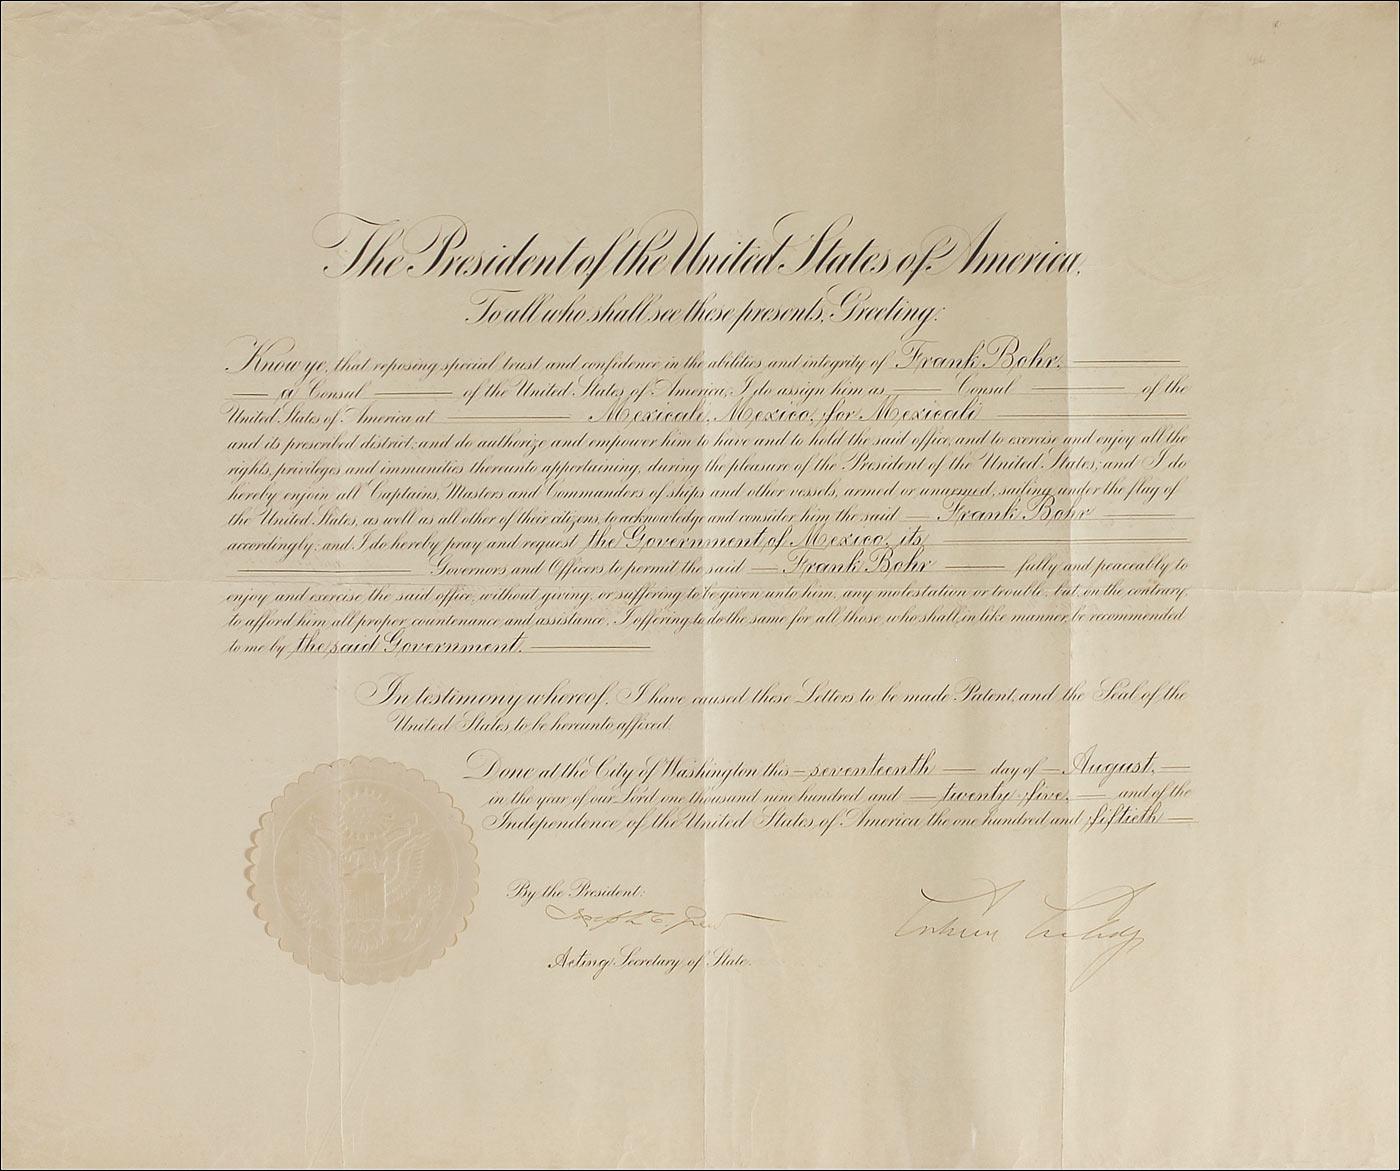 The President of the United States of America,
To all who shall see these presents, Greeting:
Know ye, that reposing special trust and confidence in the abilities and integrity of Frank Bohr,
a Consul of the United States of America, I do assign him as Consul of the
United States of America at Mexicali, Mexico, for Mexicali
and its prescribed district; and do authorize and empower him to have and to hold the said office, and to exercise and enjoy all the
rights, privileges and immunities thereunto appertaining, during the pleasure of the President of the United States; and I do
hereby enjoin all Captains, Masters and Commanders of ships and other vessels, armed or unarmed, sailing under the flag of
the United States, as well as all other of their citizens, to acknowledge and consider him the said Frank Bohr
accordingly: and I do hereby pray and request the Government of Mexico, its
Governors and Officers to permit the said Frank Bohr fully and peaceably to
enjoy and exercise the said office, without giving, or suffering to be given unto him, any molestation or trouble, but, on the contrary,
to afford him all proper countenance and assistance, I offering to do the same for all those, who shall, in like manner, be recommended
to me by the said Government.
In testimony whereof, I have caused these Letters to be made Patent, and the Seal of the
United States to be hereunto affixed.
Done at the City of Washington this seventeenth day of August,
in the year of our Lord one thousand nine hundred and twenty-five, and of the
Independence of the United States of America the one hundred and fiftieth
By the President:
Joseph C. Grew
Calvin Coolidge
Acting Secretary of State.